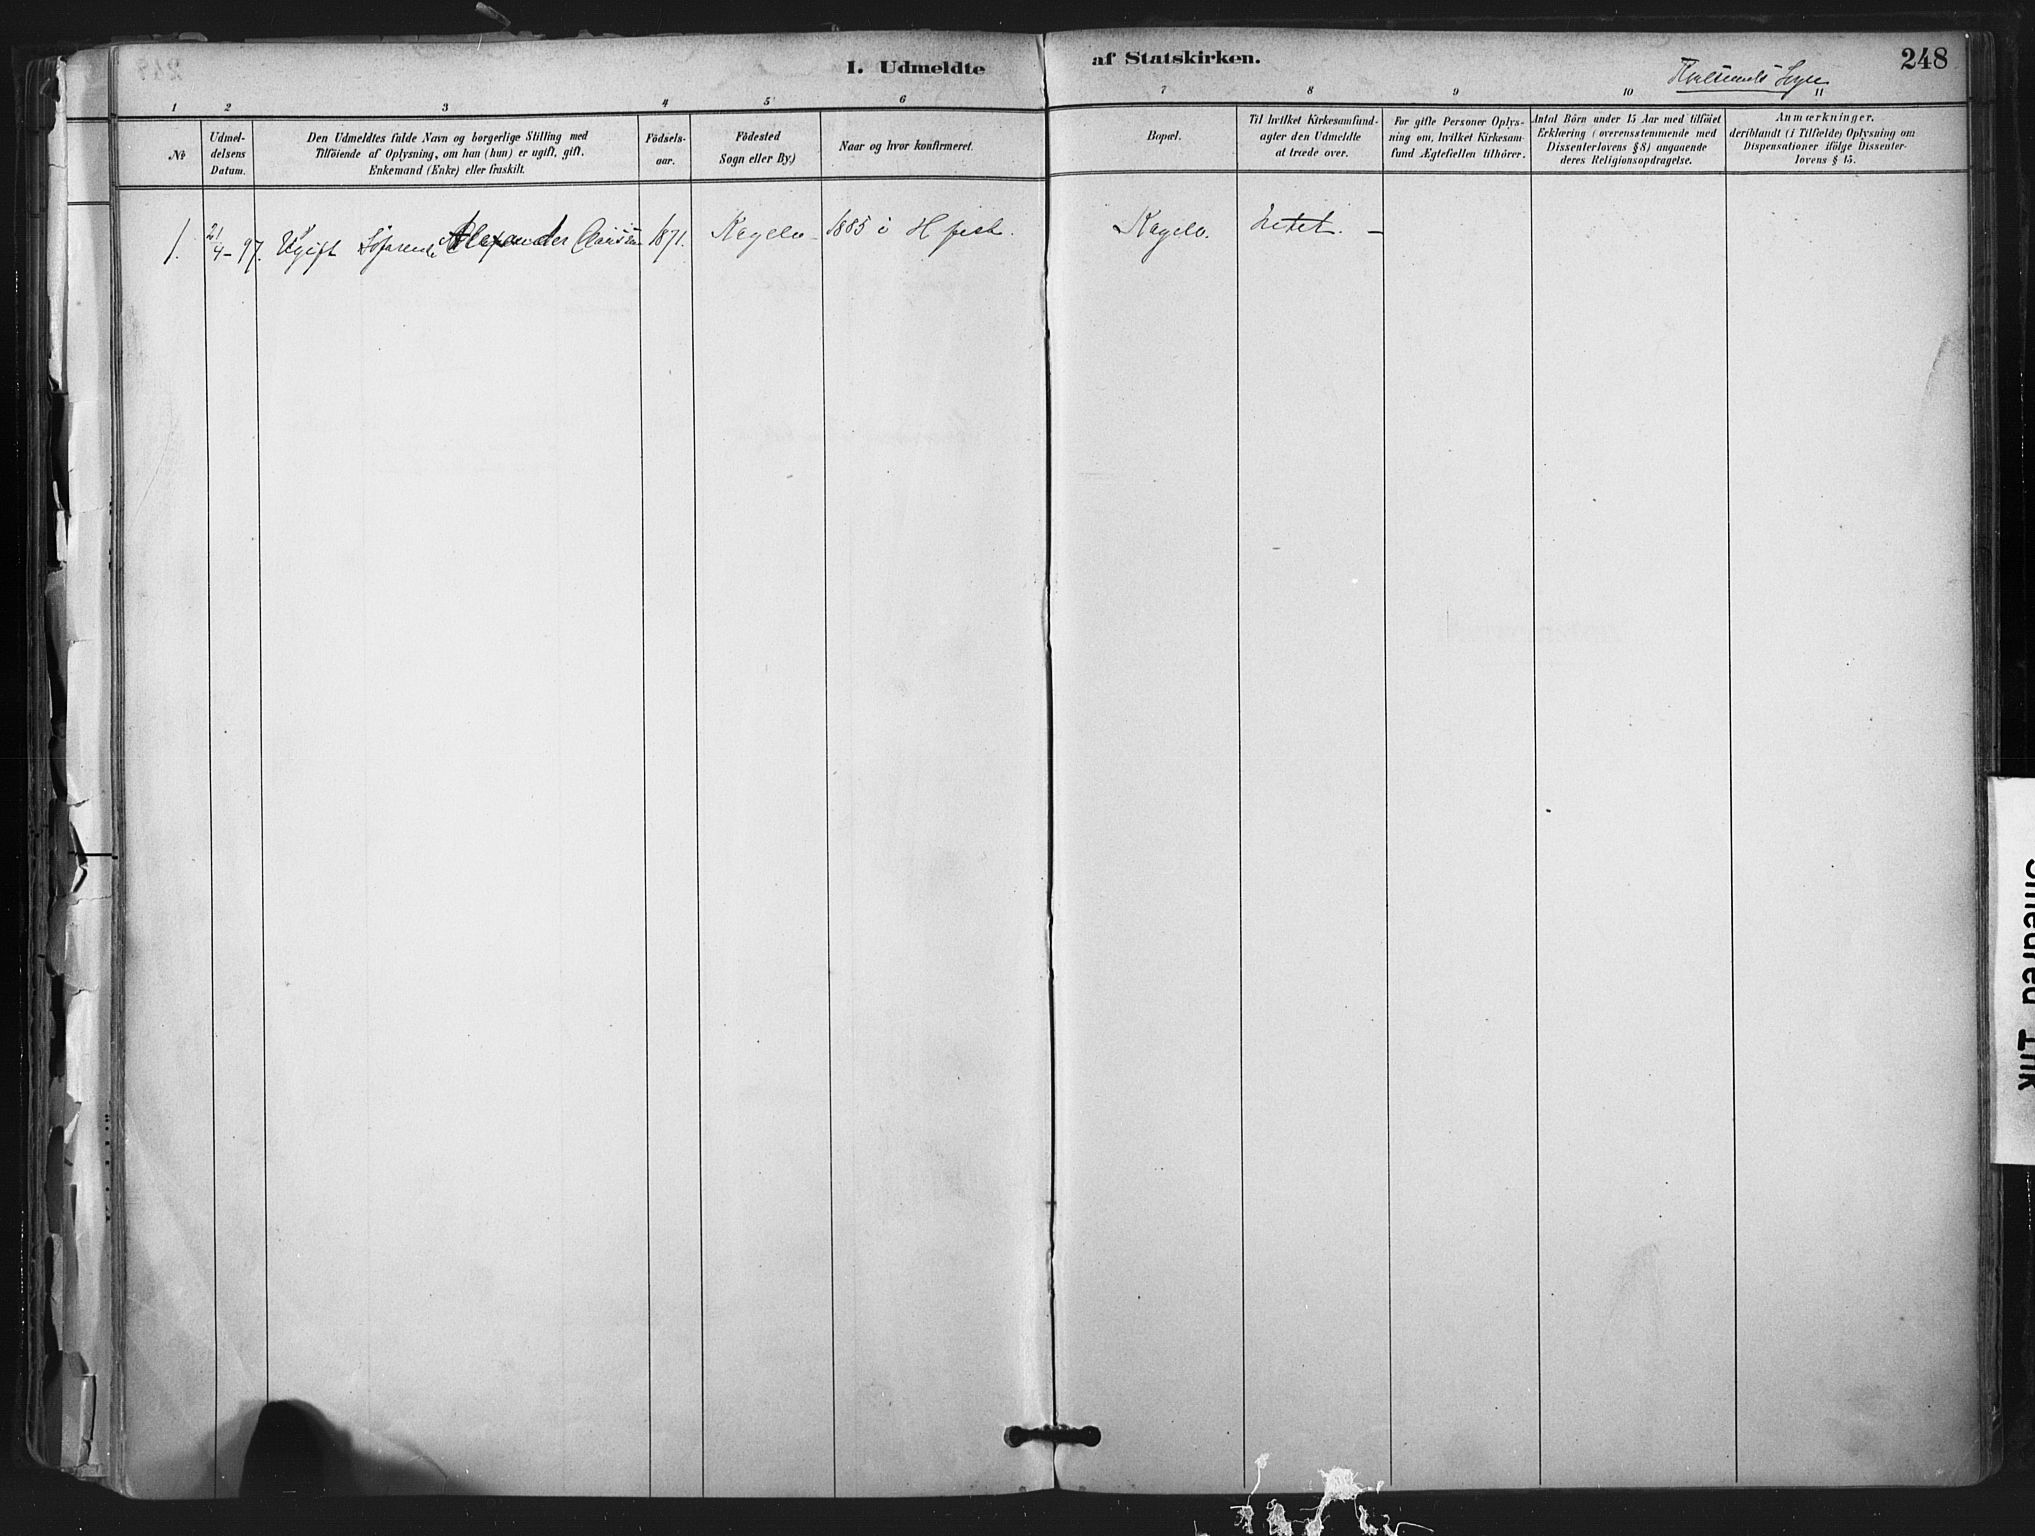 I. Udmeldte af Statskirken.
248
Sogn
1 2 3 4 5 6 7 8 9 10 11
No
Udmel-
delsens
Datum.
Den Udmeldtes fulde Navn og borgerlige Stilling med
Tilföiende af Oplysning, om han (hun) er ugift, gift.
Enkemand (Enke) eller fraskilt.
Födsels-
aar.
Födested
Sogn eller By.)
Naar og hvor konfirmeret.
Bopæl.
Til hvilket Kirkesamfund-
agter den Udmeldte
at træde over.
For gifte Personer Oplys-
ning om, hvilket Kirkesam-
fund Ægtefællen tilhörer.
Antal Börn under 15 Aar med tilföiet
Erklæring (overensstemmende med
Dissenterlovens § 8) angaaende
deres Religionsopdragelse.
Anmærkninger.
deriblandt (i Tilfælde) Oplysning om
Dispensationer ifölge Dissenter-
lovens § 15.
1. 21/4-97. Ugift Alexander 1871. 1885 i H fest. Intet. -